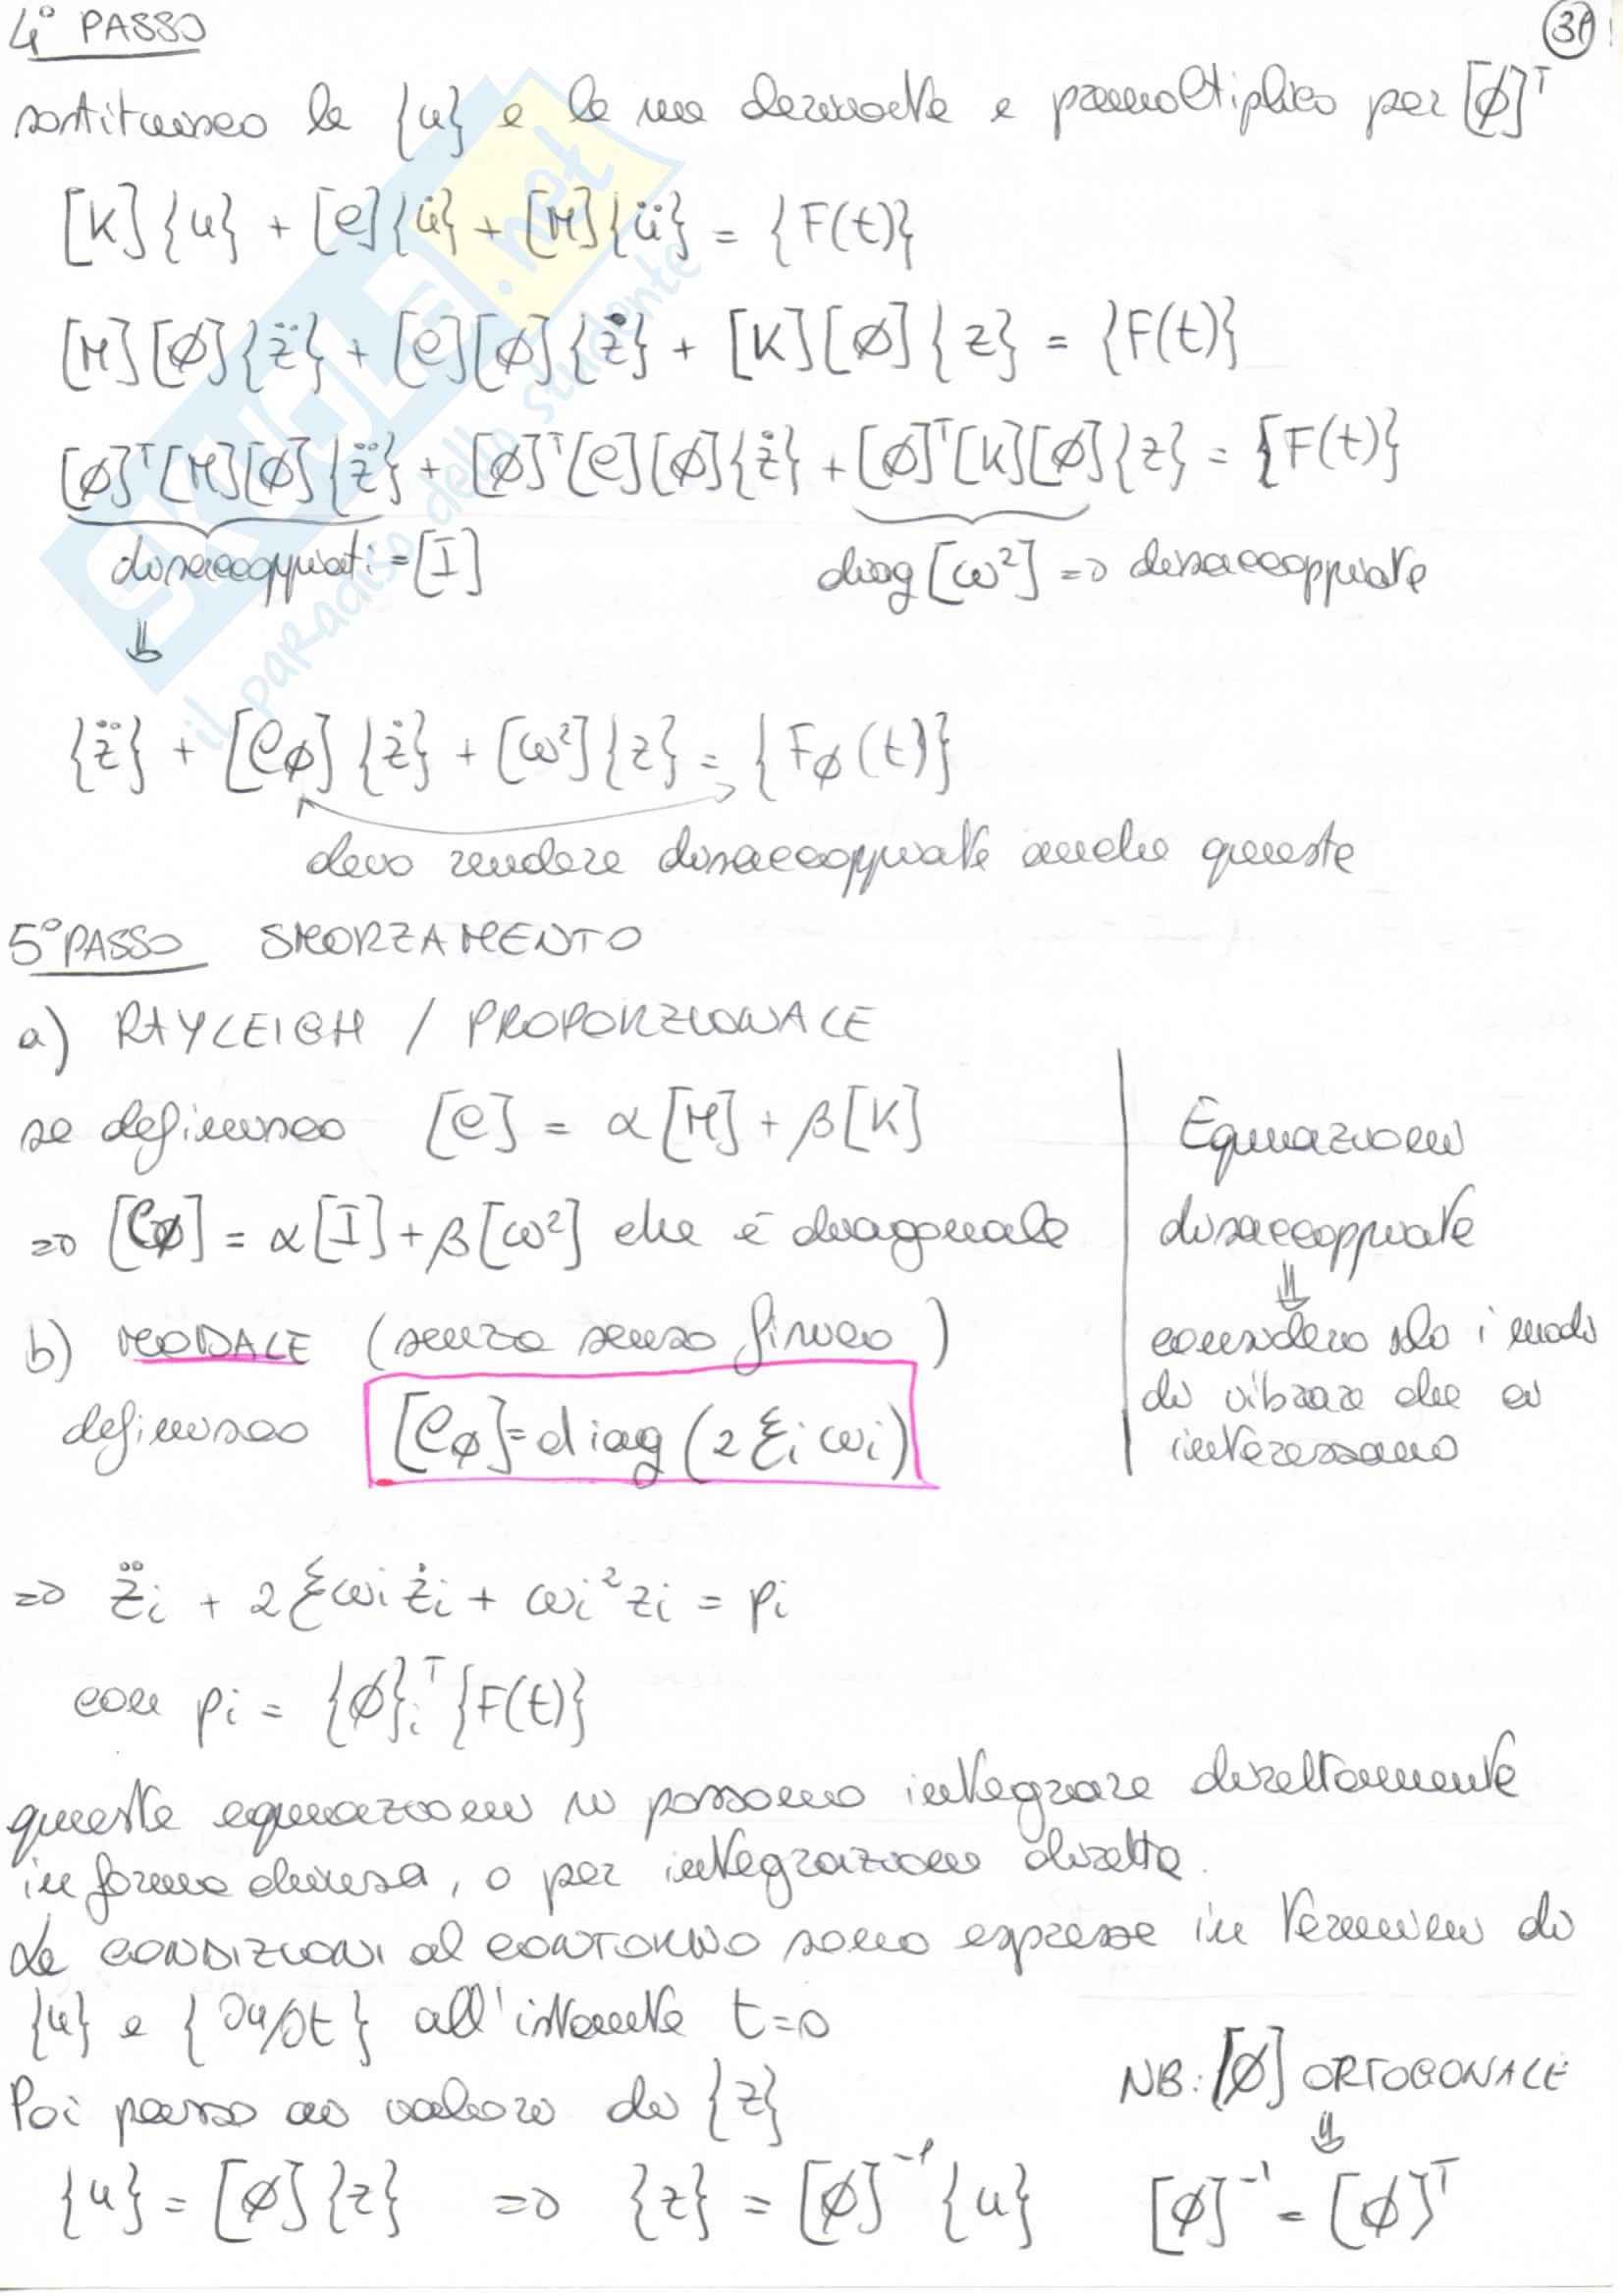 4° PASSO
31
sostituisco le {u} e le sue derivate e premoltiplico per [φ]ᵀ
[K]{u} + [C]{u̇} + [M]{ü} = {F(t)}
[M][φ]{z̈} + [C][φ]{ż} + [K][φ]{z} = {F(t)}
[φ]ᵀ[M][φ]{z̈} + [φ]ᵀ[C][φ]{ż} + [φ]ᵀ[K][φ]{z} = {F(t)}
disaccoppiati = [I]
diag[ω²] => disaccoppiate
⇓
{z̈} + [Cφ]{ż} + [ω²]{z} = {Fφ(t)}
devo rendere disaccoppiate anche queste
5° PASSO SMORZAMENTO
a) RAYLEIGH / PROPORZIONALE
se definisco [C] = α[M] + β[K]
=> [Cφ] = α[I] + β[ω²] che è diagonale
b) MODALE (senza senso fisico)
definisco [Cφ] = diag(2ξᵢωᵢ)
Equazioni
disaccoppiate
⇓
considero solo i modi
di vibrare che ci
interessano
=> z̈ᵢ + 2ξωᵢżᵢ + ωᵢ²zᵢ = pᵢ
con pᵢ = {φ}ᵢᵀ{F(t)}
queste equazioni si possono integrare direttamente
in forma chiusa, o per integrazione diretta.
Le CONDIZIONI al CONTORNO sono espresse in termini di
{u} e {∂u/∂t} all'istante t=0
Poi passo ai valori di {z}
{u} = [φ]{z} => {z} = [φ]⁻¹{u}
NB: [φ] ORTOGONALE
⇓
[φ]⁻¹ = [φ]ᵀ
SKUOLA.net
il paradiso dello studente